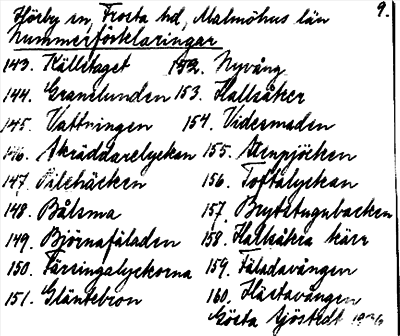 Hörby sn, Frosta hd, Malmöhus län 9.
Nummerförklaringar
143. Källetaget
144. Granelunden
145. Vattningen
146. Skräddarelyckan
147. Pilebäcken
148. Bålsma
149. Björnafäladen
150. Färsingalyckorna
151. Gläntebron
152. Nyvång
153. Hallsåker
154. Videmaden
155. Stenpjöcken
156. Toftalyckan
157. Brytstugubacken
158. Hallsåkra kärr
159. Fäladavången
160. Hästavången
Gösta Sjöstedt